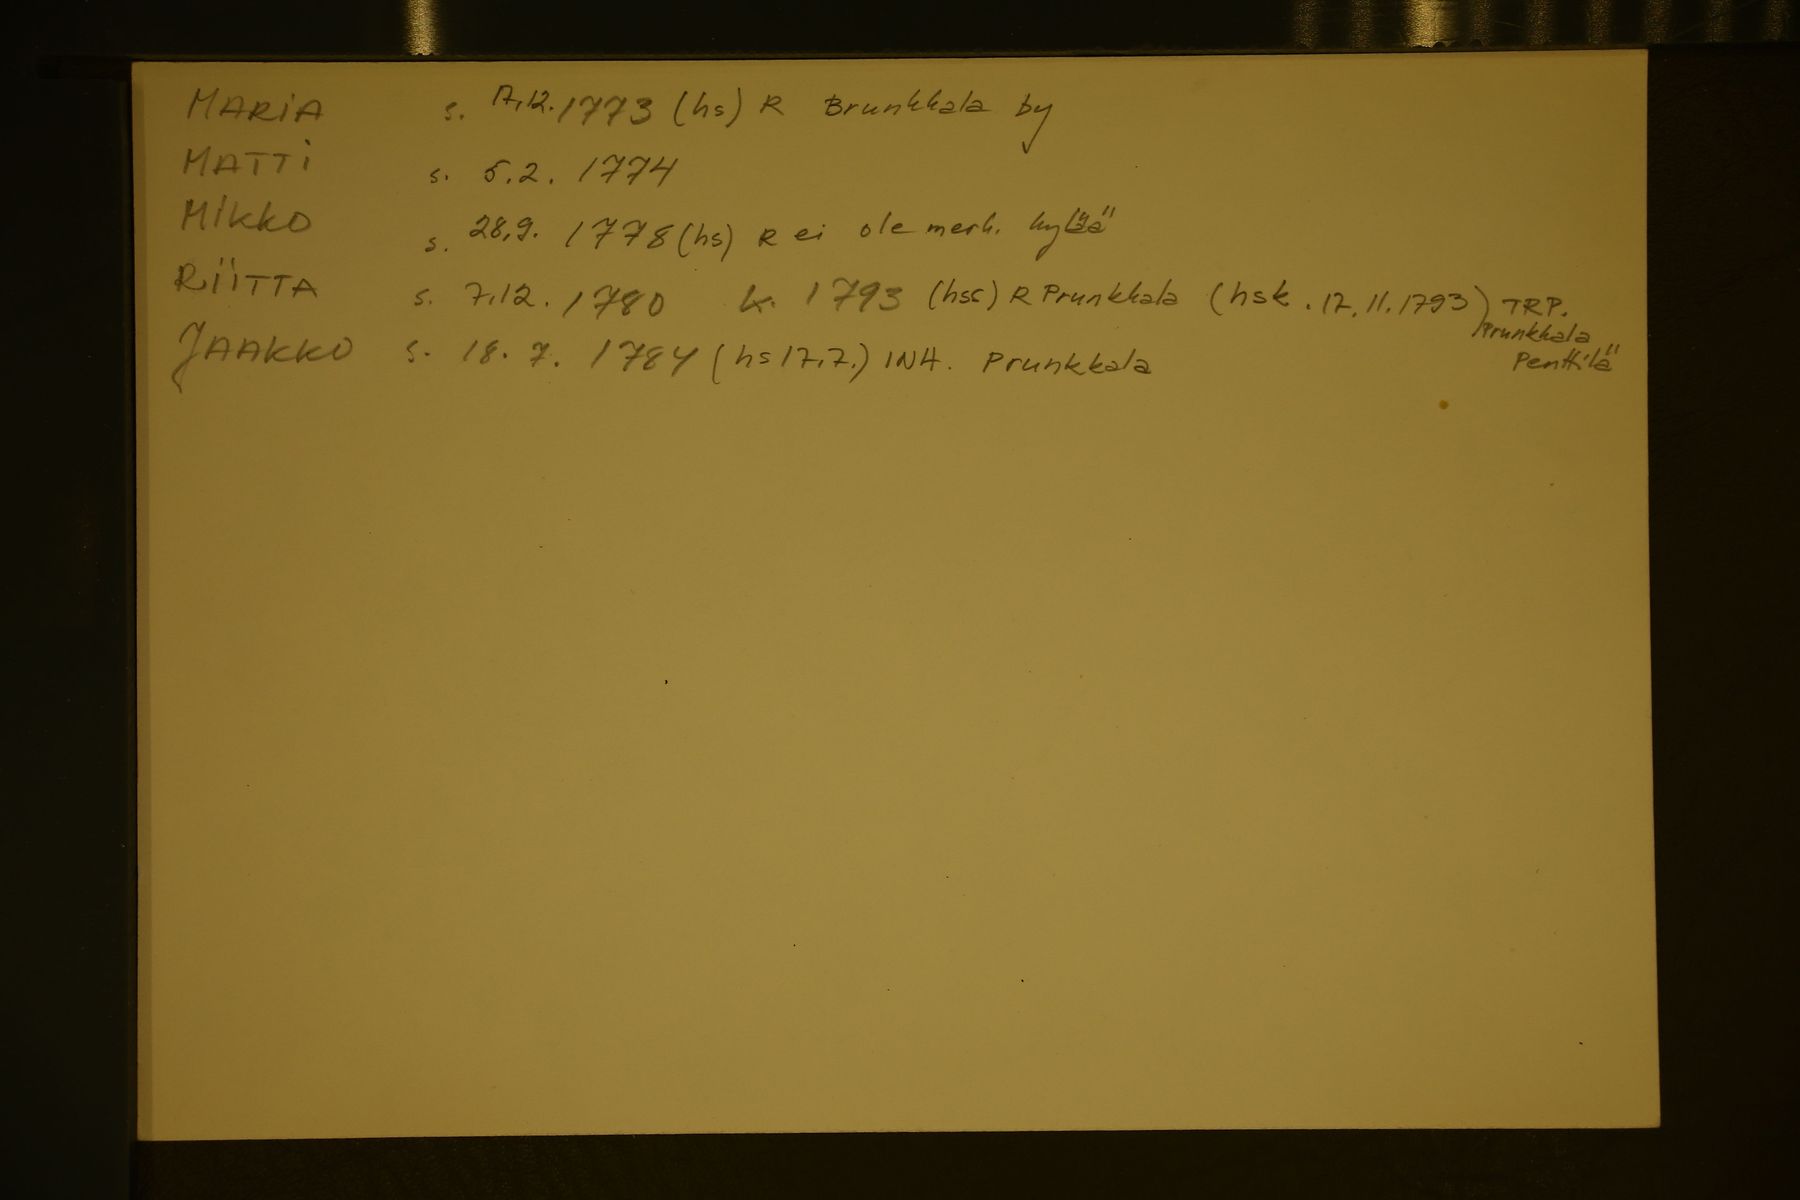 MARIA s. 17.12. 1773 (hs) R Brunkkala by
MATTI s. 5.2. 1774
MIKKO s. 28.9. 1778 (hs) R ei ole merk. kylää
RIITTA s. 7.12. 1780 k. 1793 (hss) R Prunkkala (hsk. 17.11.1793) TRP.
Prunkkala
Penttilä
JAAKKO s. 18. 7. 1784 (hs 17.7.) INH. Prunkkala